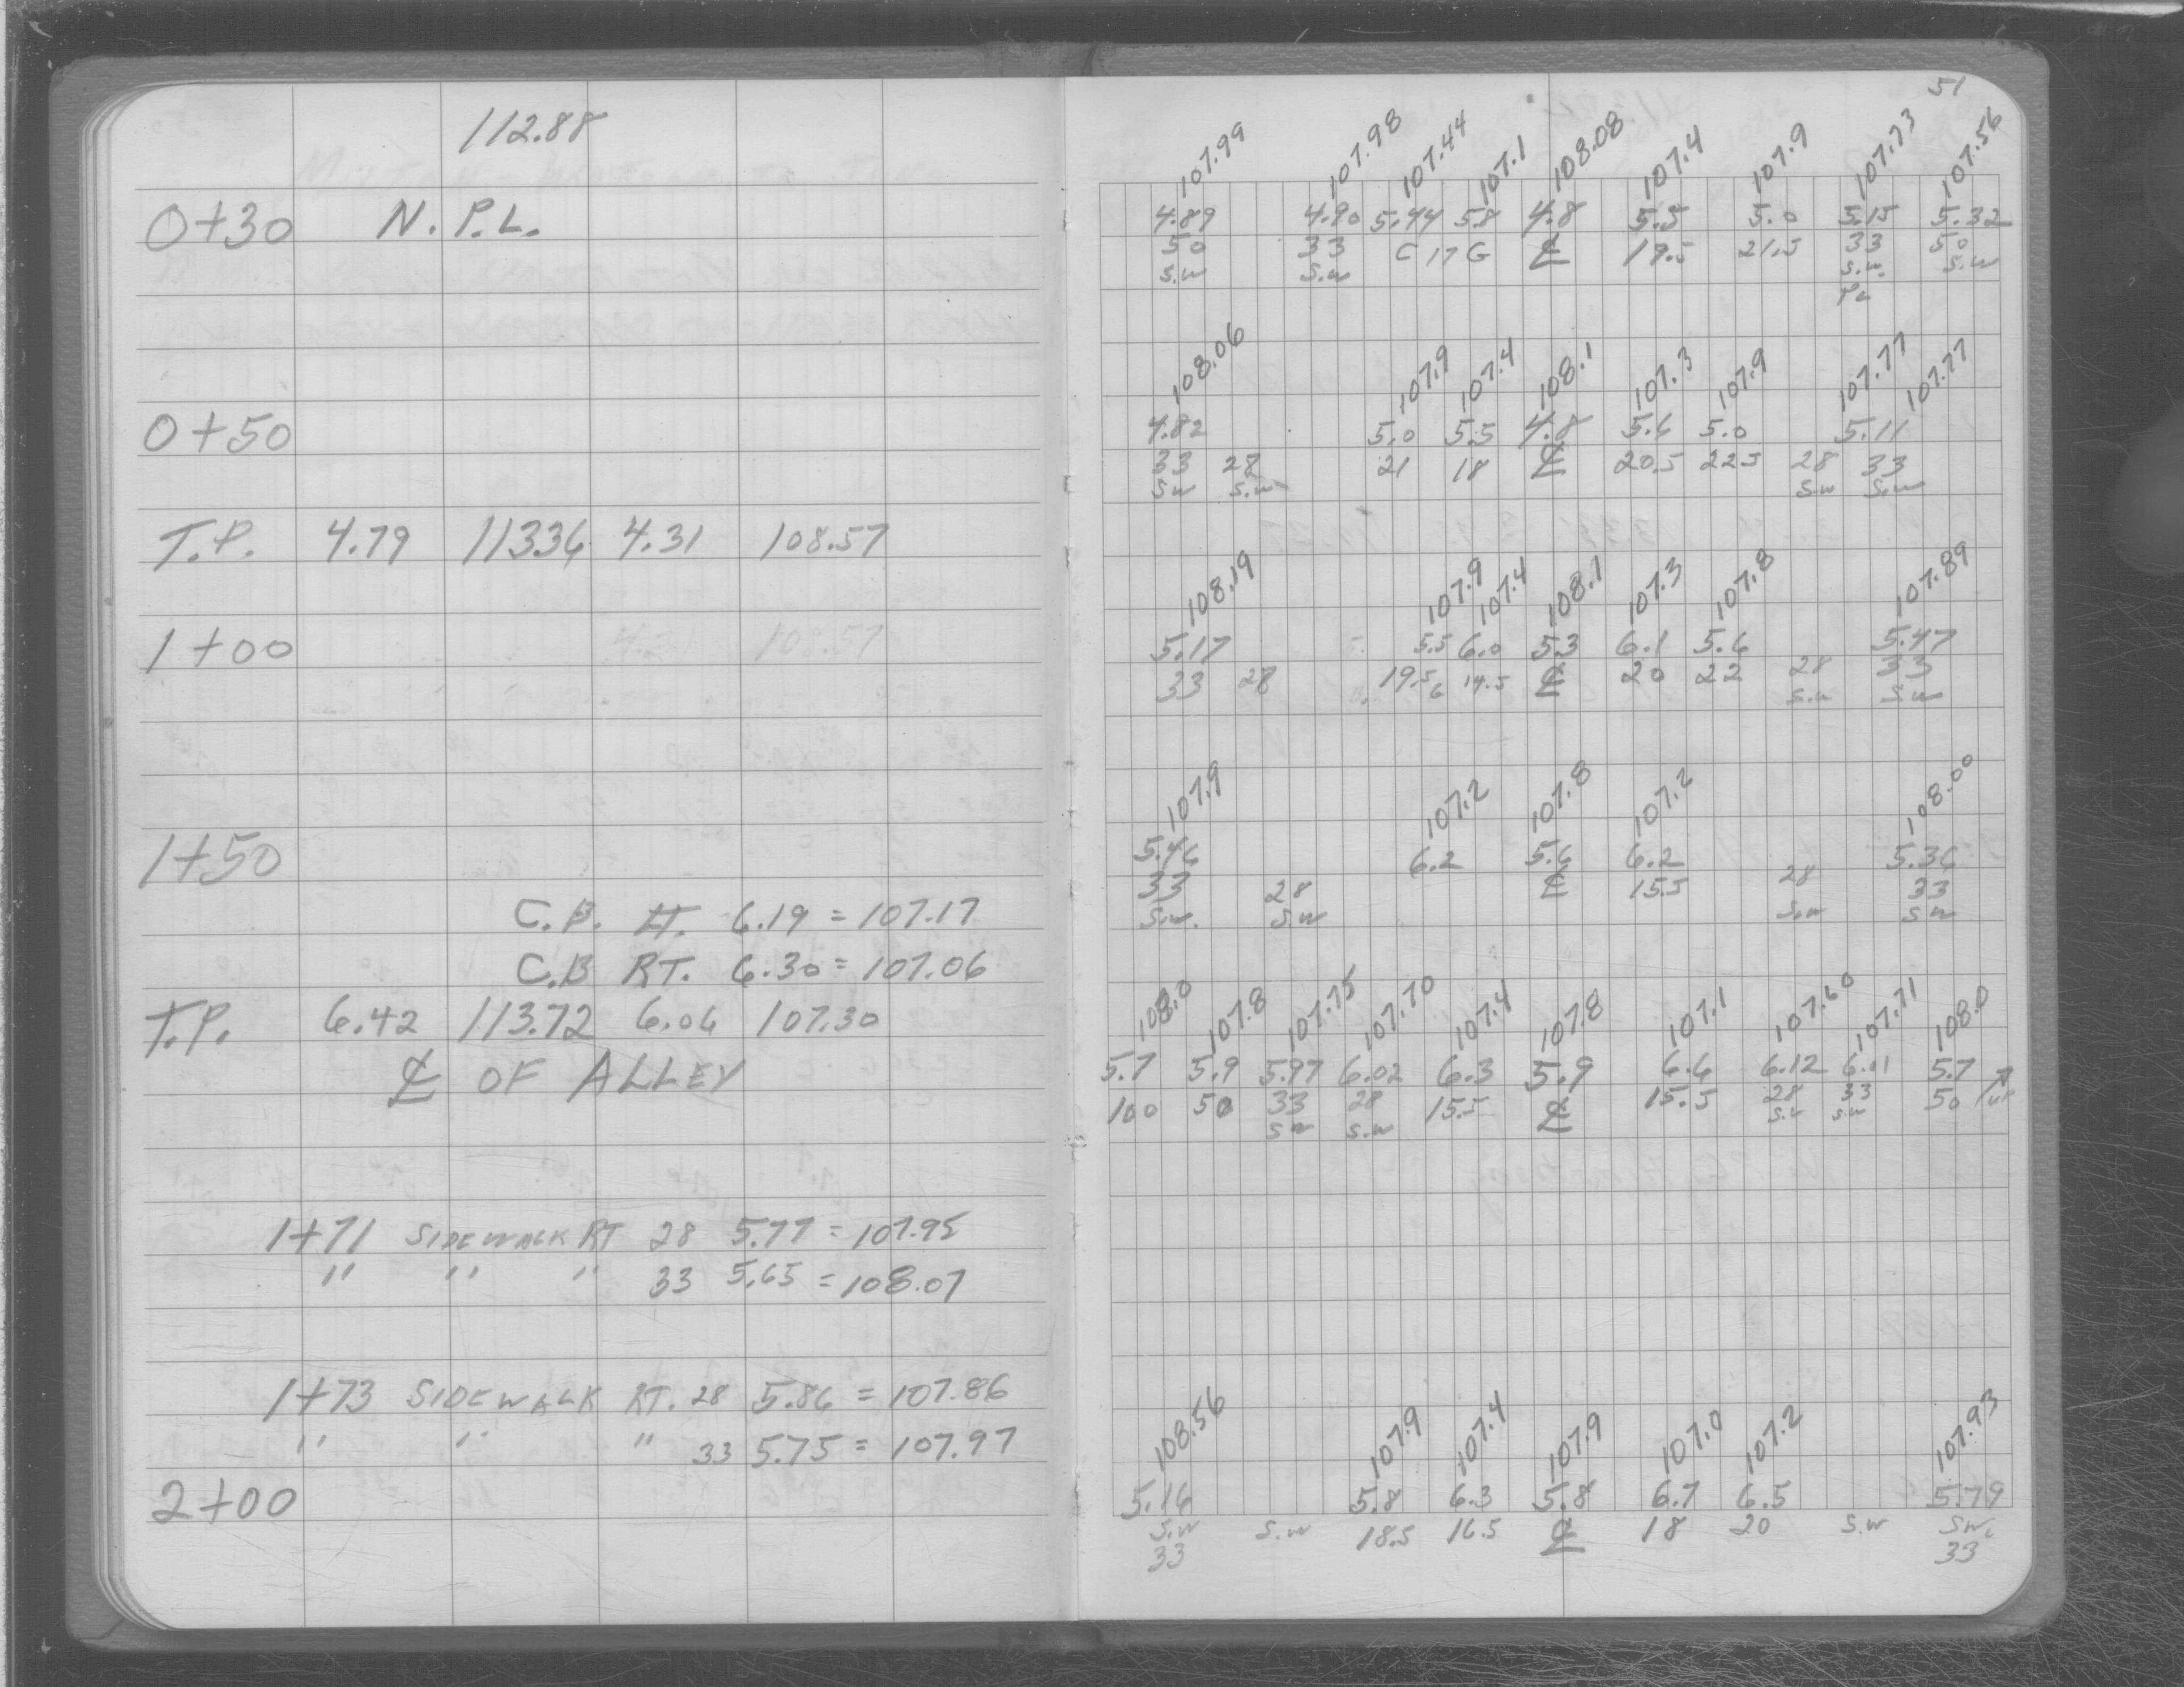 112.88
0+30 N.P.L.
0+50
T.P. 4.79 113.36 4.31 108.57
1+00 108.57
1+50
C.B. LT. 6.19 = 107.17
C.B RT. 6.30 = 107.06
T.P. 6.42 113.72 6.06 107.30
℄ OF ALLEY
1+71 SIDEWALK RT 28 5.77 = 107.95
" " " 33 5.65 = 108.07
1+73 SIDEWALK RT. 28 5.86 = 107.86
" " " 33 5.75 = 107.97
2+00
51
107.99 107.98 107.44 107.1 108.08 107.4 107.9 107.73 107.56
4.89 4.90 5.44 5.8 4.8 5.5 5.0 5.15 5.32
50 33 C 17 G ℄ 19.5 21.5 33 50
S.W S.W S.W. S.W
PL
108.06 107.9 107.4 108.1 107.3 107.9 107.77 107.77
4.82 5.0 5.5 4.8 5.6 5.0 5.11
33 28 21 18 ℄ 20.5 22.5 28 33
SW S.W S.W S.W
108.19 107.9 107.4 108.1 107.3 107.8 107.89
5.17 5.5 6.0 5.3 6.1 5.6 5.47
33 28 19.5 19.5 ℄ 20 22 28 33
S.W S.W
107.9 107.2 107.8 107.2 108.00
5.46 6.2 5.6 6.2 5.36
33 28 ℄ 15.5 28 33
S.W. S.W S.W S W
108.0 107.8 107.75 107.70 107.4 107.8 107.1 107.60 107.71 108.0
5.7 5.9 5.97 6.02 6.3 5.9 6.6 6.12 6.01 5.7
100 50 33 28 15.5 ℄ 15.5 28 33 50
S W S.W S.W S.W
108.56 107.9 107.4 107.9 107.0 107.2 107.93
5.16 5.8 6.3 5.8 6.7 6.5 5.79
S.W S.W 18.5 16.5 ℄ 18 20 S.W SW.
33 33